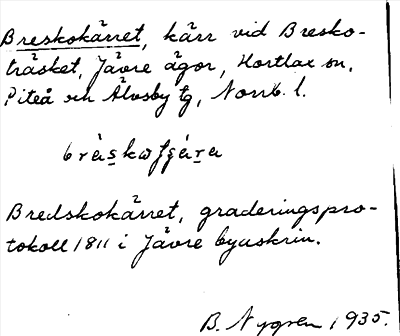 Breskokärret, kärr vid Bresko-
träsket, Jävre ägor, Hortlax sn,
Piteå och Älvsby tg, Norrb. l.
Bredskokärret, graderingspro-
tokoll 1811 i Jävre byaskrin.
B. Nygren 1935.